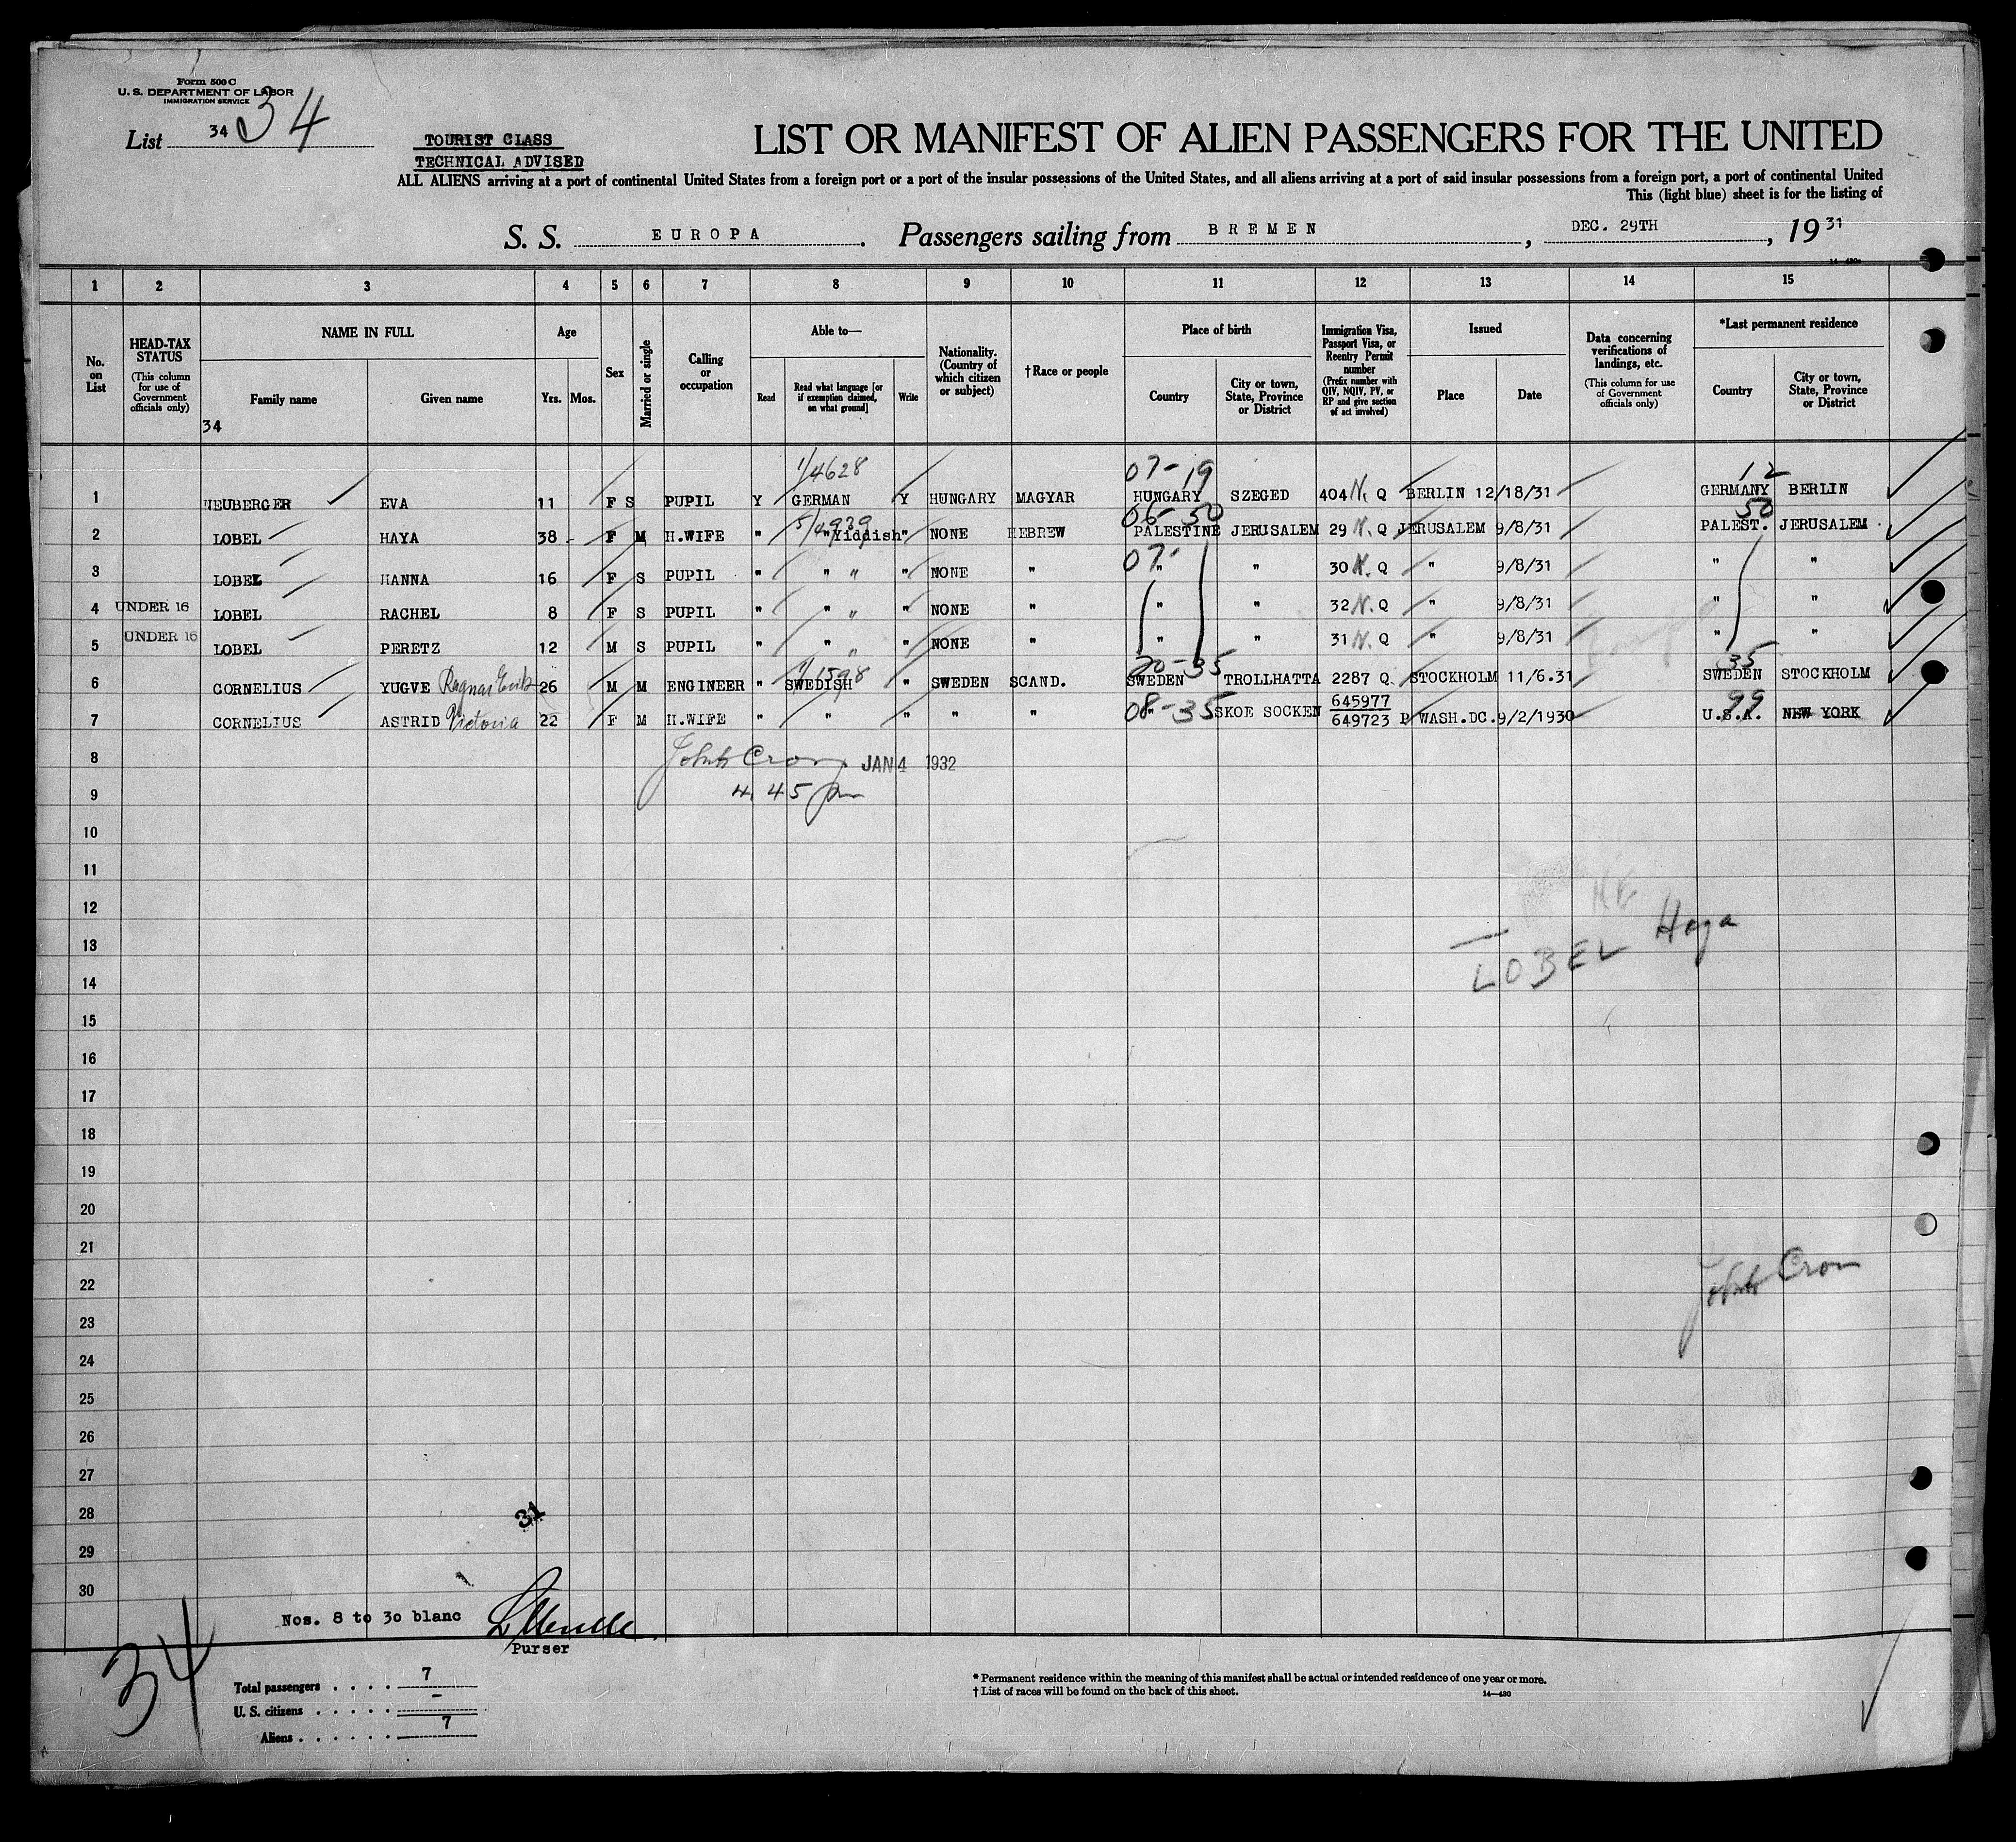 Form 500 C
U. S. DEPARTMENT OF LABOR
IMMIGRATION SERVICE
List 34 34
TOURIST CLASS
TECHNICAL ADVISED
LIST OR MANIFEST OF ALIEN PASSENGERS FOR THE UNITED
ALL ALIENS arriving at a port of continental United States from a foreign port or a port of the insular possessions of the United States, and all aliens arriving at a port of said insular possessions from a foreign port, a port of continental United
This (light blue) sheet is for the listing of
S. S. EUROPA. Passengers sailing from BREMEN, DEC. 29TH, 1931
1 2 3 4 5 6 7 8 9 10 11 12 13 14 15
No. on List
HEAD-TAX STATUS (This column for use of Government officials only)
NAME IN FULL
Family name
Given name
34
Age
Yrs. Mos.
Sex
Married or single
Calling or occupation
Able to—
Read
Read what language [or if exemption claimed, on what ground]
Write
Nationality. (Country of which citizen or subject)
†Race or people
Place of birth
Country
City or town, State, Province or District
Immigration Visa, Passport Visa, or Reentry Permit number (Prefix number with QIV, NQIV, PV, or RP and give section of act involved)
Issued
Place
Date
Data concerning verifications of landings, etc. (This column for use of Government officials only)
*Last permanent residence
Country
City or town, State, Province or District
1/4628 07-19 12
1 NEUBERGER EVA 11 F S PUPIL Y GERMAN Y HUNGARY MAGYAR HUNGARY SZEGED 404 N. Q BERLIN 12/18/31 GERMANY BERLIN
5/4939 06-50 50
2 LOBEL HAYA 38 F M H.WIFE " " Yiddish " NONE HEBREW PALESTINE JERUSALEM 29 N. Q JERUSALEM 9/8/31 PALEST. JERUSALEM
07-
3 LOBEL HANNA 16 F S PUPIL " " " " NONE " " " 30 N. Q " 9/8/31 " "
4 UNDER 16 LOBEL RACHEL 8 F S PUPIL " " " " NONE " " " 32 N. Q " 9/8/31 " "
5 UNDER 16 LOBEL PERETZ 12 M S PUPIL " " " " NONE " " " 31 N. Q " 9/8/31 " "
1/1598 20-35 35
6 CORNELIUS YUGVE Ragnar Erik 26 M M ENGINEER " SWEDISH " SWEDEN SCAND. SWEDEN TROLLHATTA 2287 Q. STOCKHOLM 11/6.31 SWEDEN STOCKHOLM
08-35 99
7 CORNELIUS ASTRID Victoria 22 F M H.WIFE " " " " " " SKOE SOCKEN 645977 649723 P WASH.DC. 9/2/1930 U.S.A. NEW YORK
8 JAN 4 1932
9 4.45 pm
10
11
12
13 Haya
14 LOBEL
15
16
17
18
19
20
21
22
23
24
25
26
27
28
29
30
34
Nos. 8 to 30 blanc
Purser
34
Total passengers . . . . 7
U. S. citizens . . . . . -
Aliens . . . . . . 7
* Permanent residence within the meaning of this manifest shall be actual or intended residence of one year or more.
† List of races will be found on the back of this sheet.
14—430